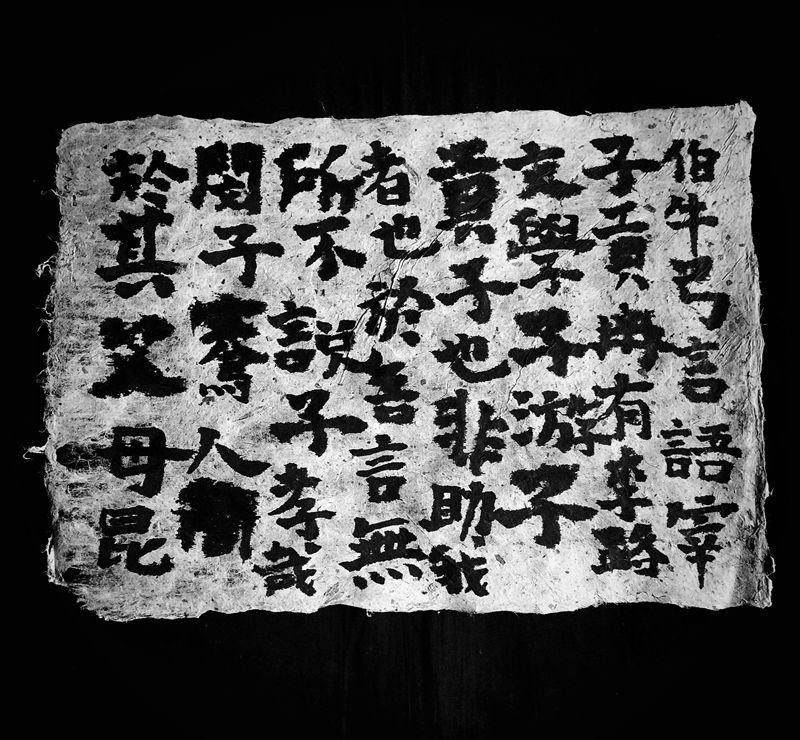 伯牛弓言語宰
子貢冉有季路
文學子游子
子也非助我
者也於吾言無
所不說子孝哉
閔子騫人間
於其母昆